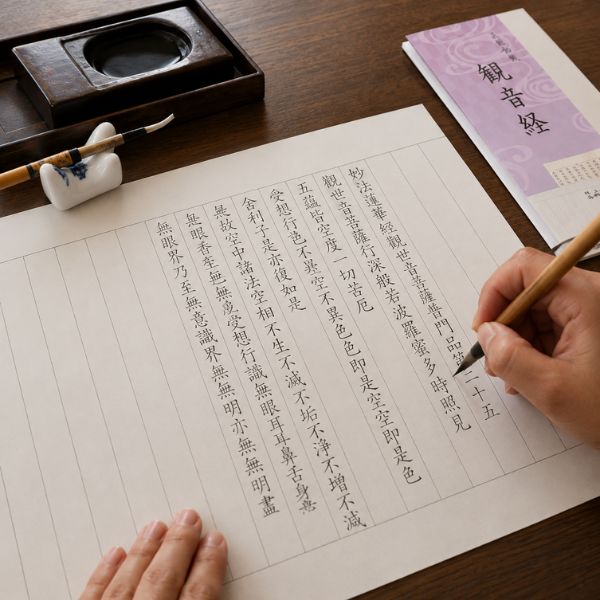 観音経
妙法蓮華經觀世音菩薩普門品第二十五
觀世音菩薩行深般若波羅蜜多時照見
五蘊皆空度一切苦厄
受想行不異空不異色色即是空空即是色
舍利子是亦復如是
無故空中諸法空相不生不滅不垢不淨不增不減
無眼香無受想行識無眼耳耳鼻舌身意
無眼界乃至無意識界無無明亦無無明盡